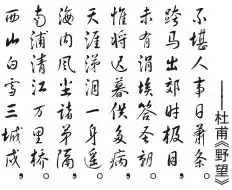 西山白雪三城戍，
南浦清江万里桥。
海内风尘诸弟隔，
天涯涕泪一身遥。
惟将迟暮供多病，
未有涓埃答圣朝。
跨马出郊时极目，
不堪人事日萧条。
——杜甫《野望》